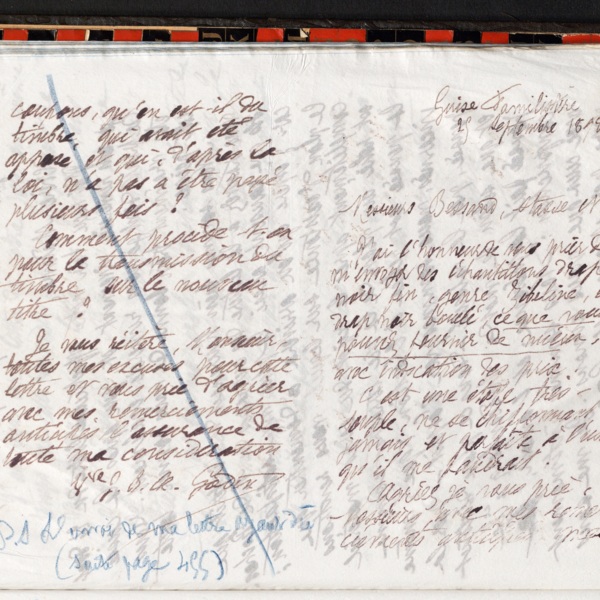 coupons, qu'en est-il du
timbre, qui avait été
apposé et qui, d'après la
loi, n'a pas à être payé
plusieurs fois ?
Comment procède t-on
pour la transmission du
timbre, sur le nouveau
titre ?
Je vous réitère Monsieur
toutes mes excuses pour cette
lettre et vous prie d'agréer
avec mes remerciements
anticipés l'assurance de
toute ma considération
Vve J. B. A. Godin
P.S. L'envoi de ma lettre
(Suite page 455)
Guise Familistère
25 septembre 18
Messieurs Bessand,
J'ai l'honneur de vous prier d
m'envoyer des échantillons drap
noir fin, genre zibeline,
drap noir boulé, ce que vous
pouvez fournir de mieux,
avec indication des prix.
C'est une étoffe très
souple, ne se chiffonnant
jamais et
qu'il me faudrait.
Agréez je vous prie
Messieurs, avec mes remer
ciements anticipés